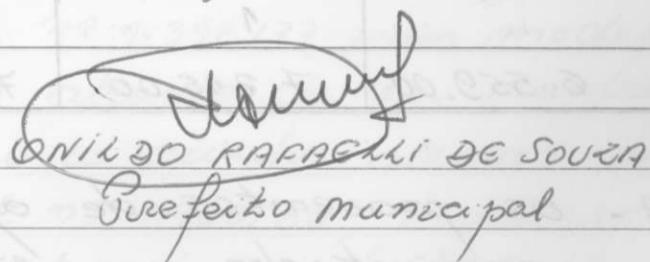 ONILDO RAFAELLI DE SOUZA
Prefeito municipal